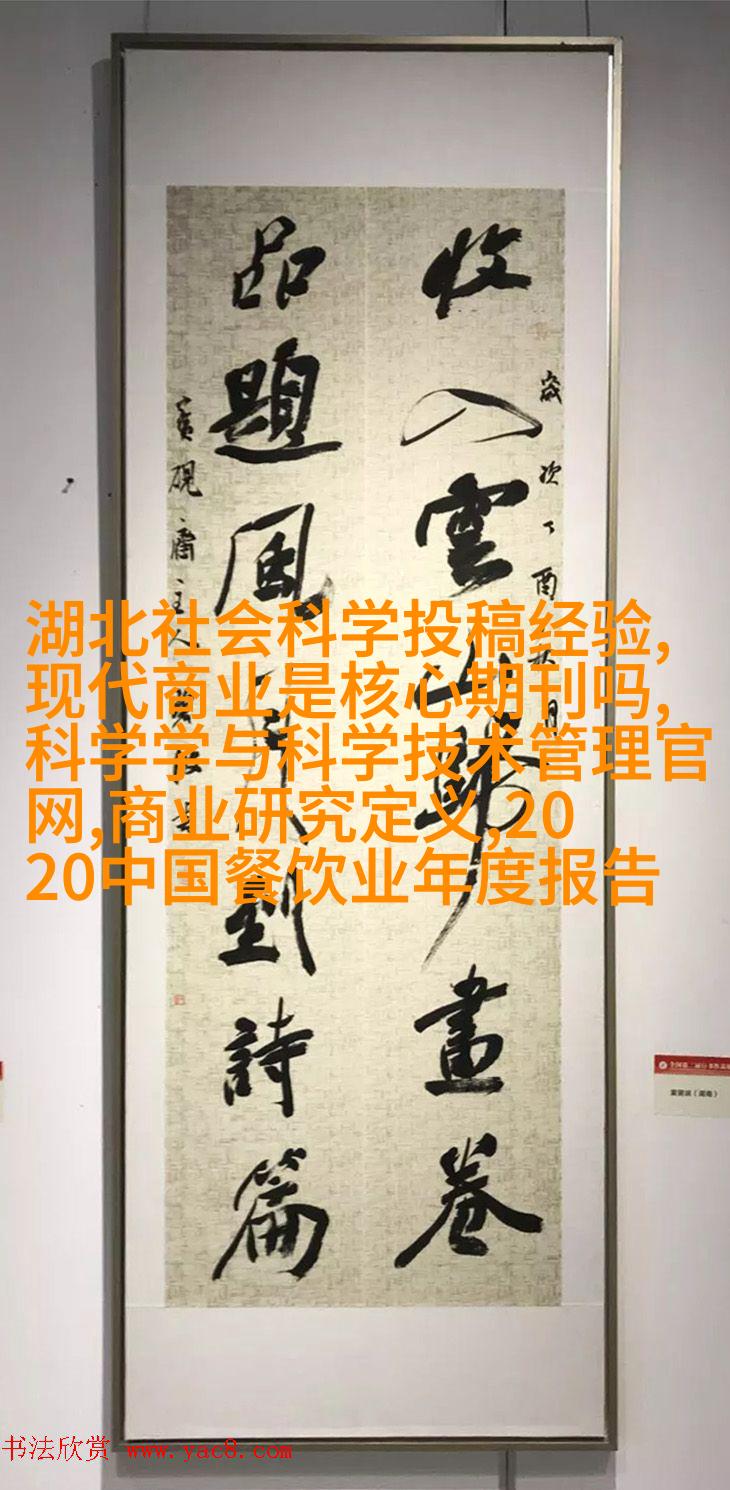 收入雲山歸畫卷
歲次丁酉
品題風月到詩篇
硯齋主人
湖北社会科学投稿经验,
现代商业是核心期刊吗,
科学学与科学技术管理官
网,商业研究定义,20
20中国餐饮业年度报告
书法欣赏 www.yac8.com